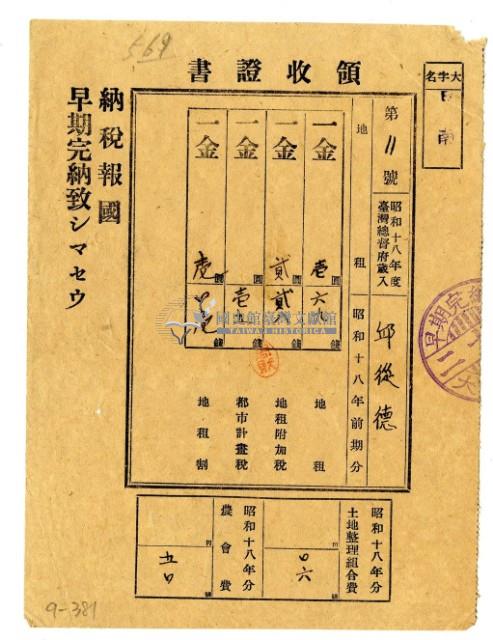 569
領收證書
大字名
日南
第11號
昭和十八年度
臺灣總督府歲入
邱從德
地租
昭和十八年前期分
一金 壱圓六 錢 地租
一金 貳圓貳 錢 地租附加稅
一金 圓壱 錢 都市計畫稅
一金 圓 錢 地租割
納稅報國
早期完納致シマセウ
昭和十八年分
土地整理組合費
圓 四六 錢
昭和十八年分
農會費
圓 五四 錢
國史館臺灣文獻館
TAIWAN HISTORICA
早期完納
9-381